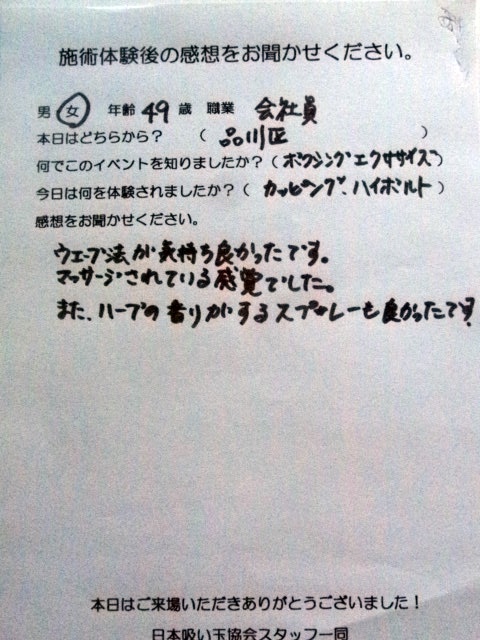 施術体験後の感想をお聞かせください。
男 女 年齢 49 歳 職業 会社員
本日はどちらから? ( 品川区 )
何でこのイベントを知りましたか? ( ボクシングエクササイズ )
今日は何を体験されましたか? ( カッピング、ハイボルト )
感想をお聞かせください。
ウェーブ法が気持ち良かったです。
マッサージされている感覚でした。
また、ハーブの香りがするスプレーも良かったです
本日はご来場いただきありがとうございました!
日本吸い玉協会スタッフ一同